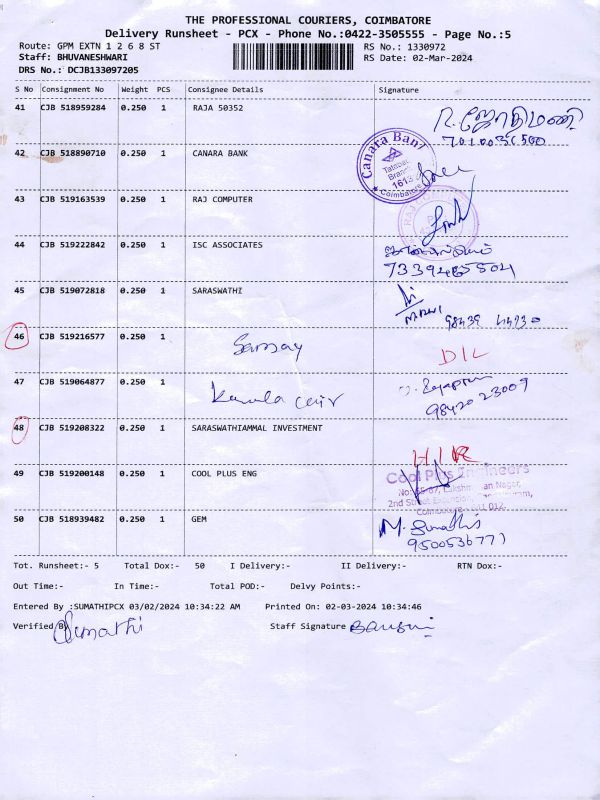 THE PROFESSIONAL COURIERS, COIMBATORE
Delivery Runsheet - PCX - Phone No.:0422-3505555 - Page No.:5
Route: GPM EXTN 1 2 6 8 ST RS No.: 1330972
Staff: BHUVANESHWARI RS Date: 02-Mar-2024
DRS No.: DCJB133097205
S No Consignment No Weight PCS Consignee Details Signature
41 CJB 518959284 0.250 1 RAJA 50352
R. ஜோதிமணி
42 CJB 518890710 0.250 1 CANARA BANK
Canara Bank
Branch
Coimbatore
43 CJB 519163539 0.250 1 RAJ COMPUTER
44 CJB 519222842 0.250 1 ISC ASSOCIATES
45 CJB 519072818 0.250 1 SARASWATHI
46 CJB 519216577 0.250 1 D/L
47 CJB 519064877 0.250 1
98420 23009
48 CJB 519208322 0.250 1 SARASWATHIAMMAL INVESTMENT
49 CJB 519200148 0.250 1 COOL PLUS ENG
Cool Plus Engineers
50 CJB 518939482 0.250 1 GEM M. Sumathi
9500536771
Tot. Runsheet:- 5 Total Dox:- 50 I Delivery:- II Delivery:- RTN Dox:-
Out Time:- In Time:- Total POD:- Delvy Points:-
Entered By :SUMATHIPCX 03/02/2024 10:34:22 AM Printed On: 02-03-2024 10:34:46
Verified By Sumathi Staff Signature